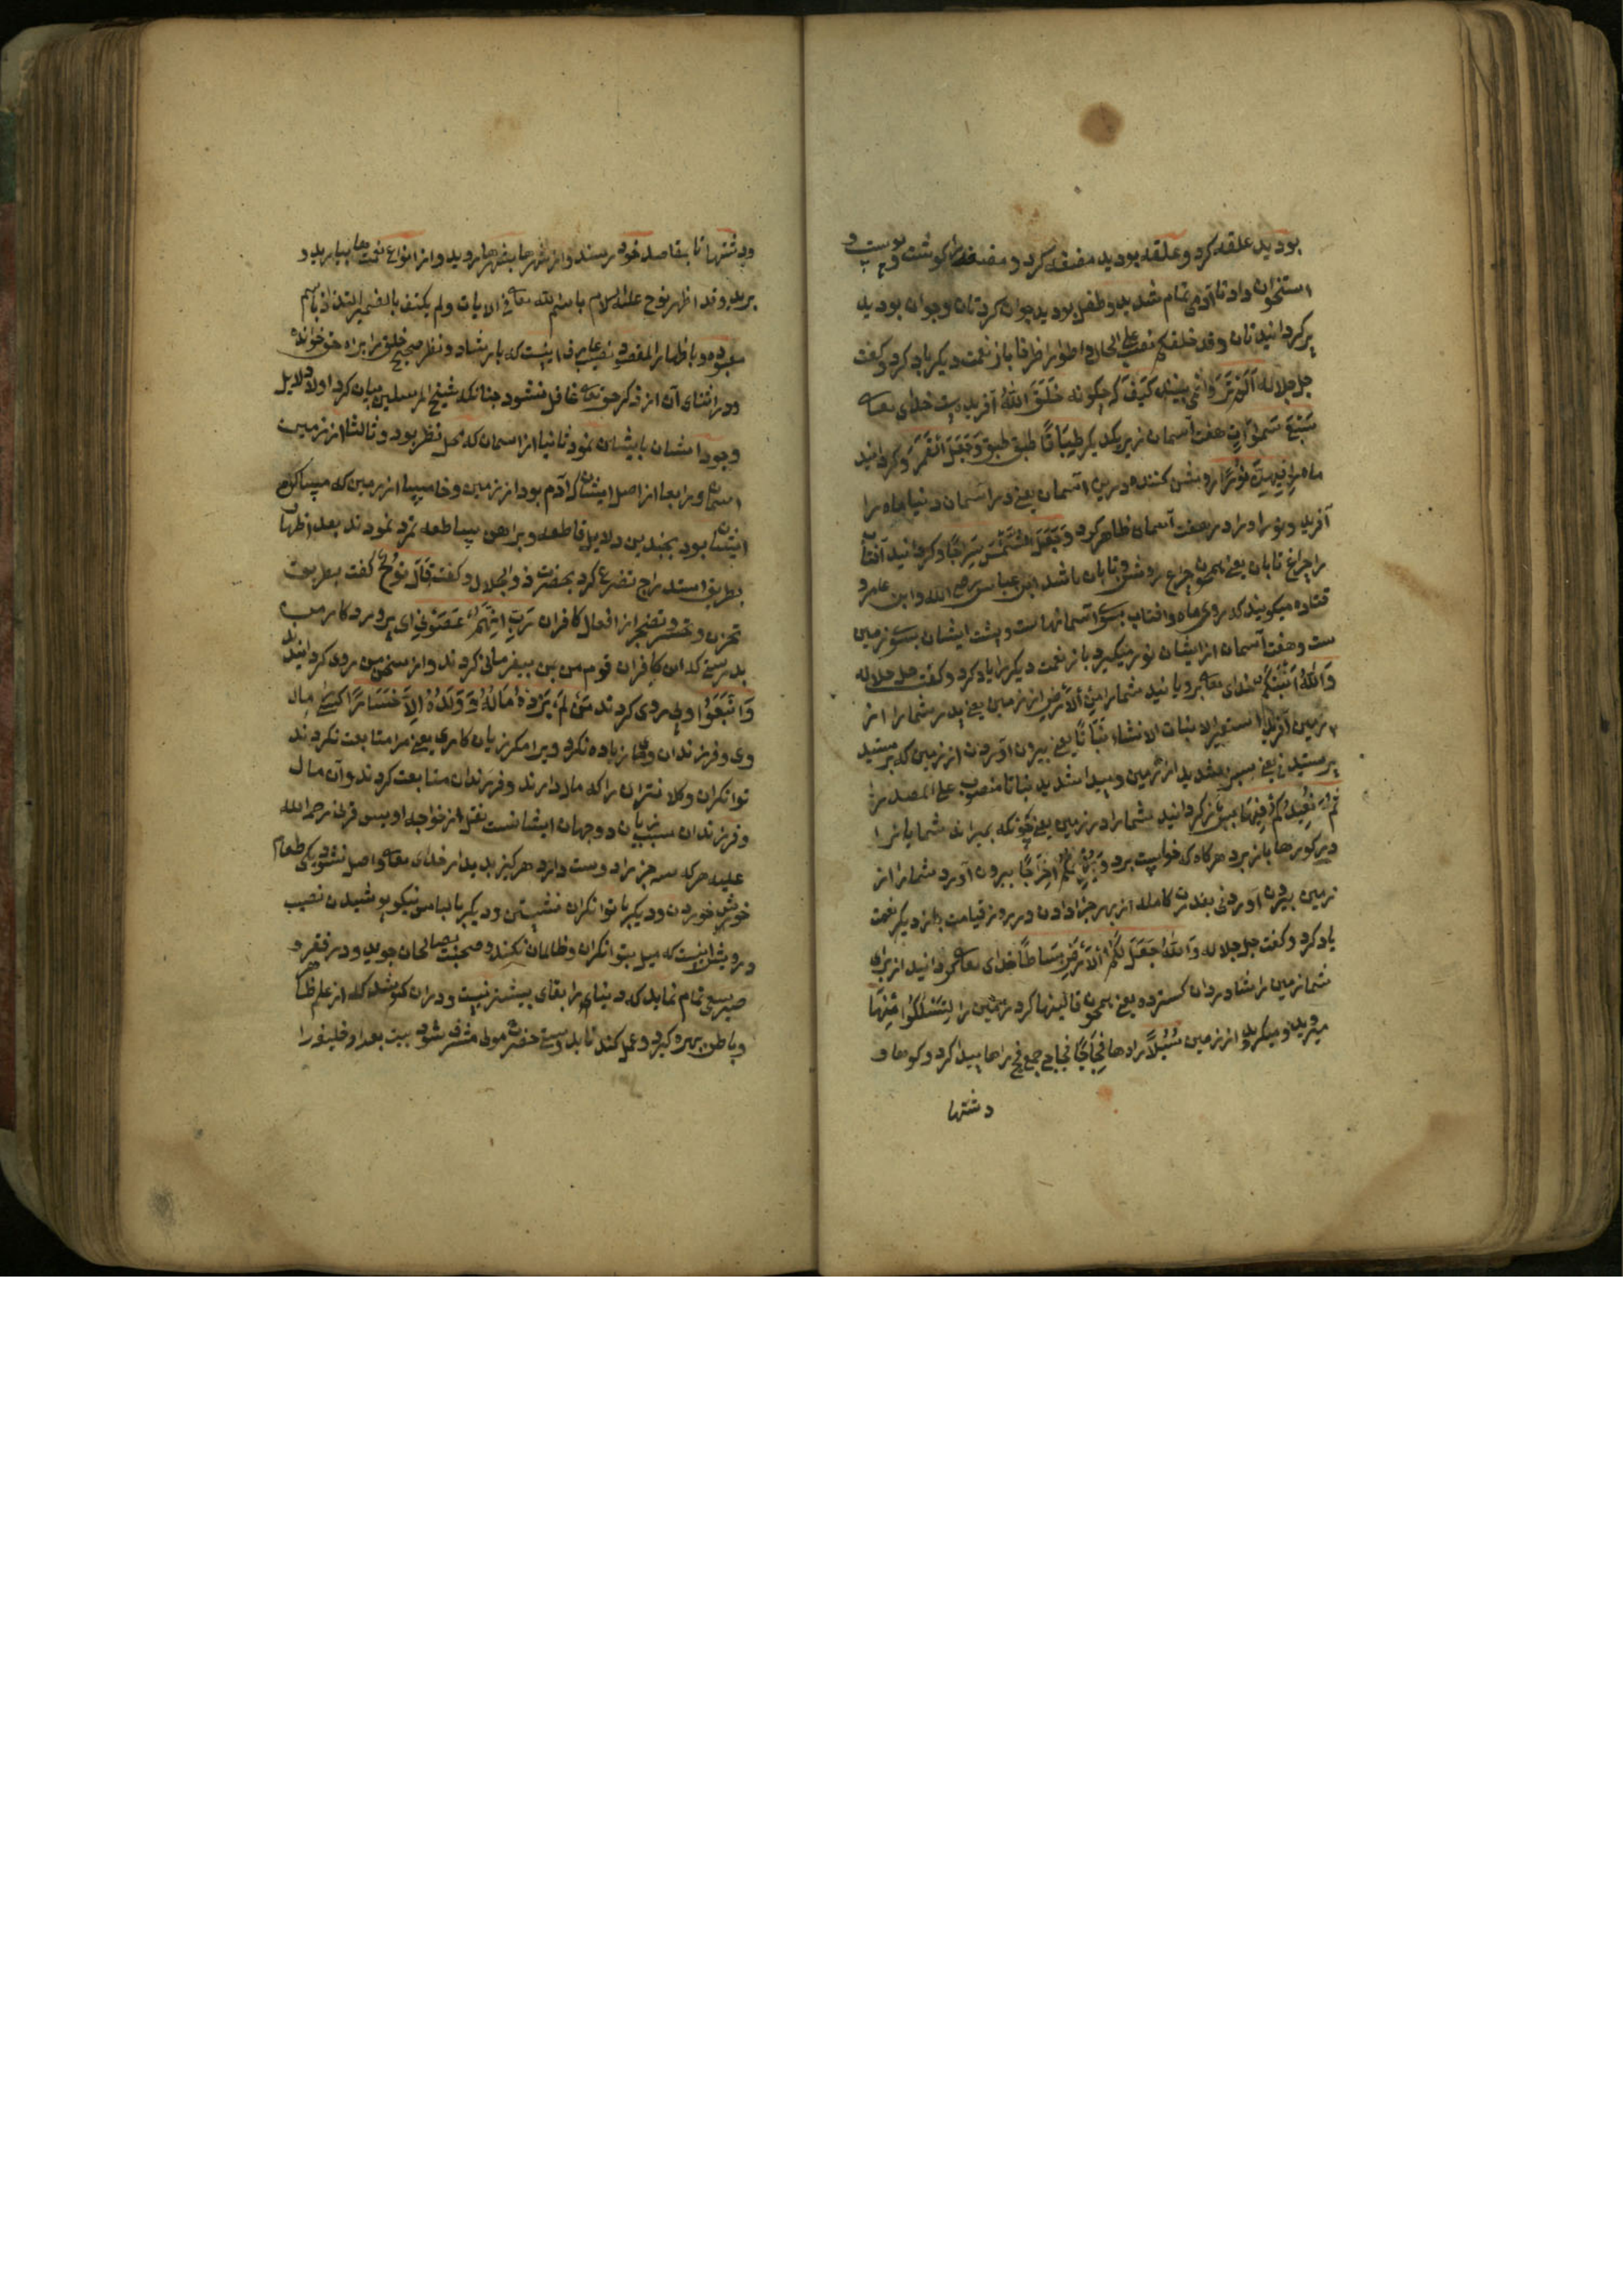 بودید علقه کرد و علقه بودید مضغه کرد و مضغه را کوشت و پوست و
استخوان داد تا آدمی تمام شدید و طفل بودید جوان کردتان و جوان بودید
پیر کردانیدتان وقد خلقکم نصب علی الحال و اطوارا ظرفا باز نعمت دیکر یاد کرد و کفت
جل جلاله أَلَمْ تَرَوْا نمی بینید كَيْفَ که چکونه خَلَقَ اللَّهُ آفریده است خدای تعالی
سَبْعَ سَمٰوَاتٍ هفت آسمان زبر یکدیکر طِبَاقًا طبق طبق وَجَعَلَ الْقَمَرَ و کردانید
ماه را فِيهِنَّ نُورًا روشن کننده درین آسمان یعنی در آسمان دنیا ماه را
آفرید و نور او را در هفت آسمان ظاهر کرد وَجَعَلَ الشَّمْسَ سِرَاجًا و کردانید آفتاب
را چراغ تابان یعنی همچون چراغ روشن و تابان باشد ابن عباس رضی الله و ابن عامر و
قتاده میکویند که روی ماه و افتاب بسوی آسمانهاست و پشت ایشان بسوی زمین
ست و هفت آسمان از ایشان نور میکیرد باز نعمت دیکر را یاد کرد و کفت جل جلاله
وَاللَّهُ أَنْبَتَكُمْ خدای تعالی برویانید شما را مِنَ الْأَرْضِ از زمین یعنی پدر شما را از
زمین آفرید استعیر الانبات الانشاء نَبَاتًا یعنی بیرون آوردن از زمین که برستید
برستیدنی یعنی سبز شدید از زمین و پیدا شدید نباتا منصوب علی المصدر
ثُمَّ يُعِيدُكُمْ فِيهَا پس باز کردانید شما را در زمین یعنی چونکه بمیراند شمایانرا
در کورها باز برد هرکاه که خواست برد وَيُخْرِجُكُمْ إِخْرَاجًا بیرون آورد شما را از
زمین بیرون آوردنی بقدرت کامله از بهر جزا دادن در روز قیامت باز دیکر نعمت
یاد کرد و کفت جل جلاله وَاللَّهُ جَعَلَ لَكُمُ الْأَرْضَ بِسَاطًا خدای تعالی کردانید از برای
شما زمین را شادروان کسترده یعنی همچون قالینها کرد زمین را لِتَسْلُكُوا مِنْهَا
میروید و میکیرید از زمین سُبُلًا راهها فِجَاجًا فجاج جمع فج راها پیدا کرد و کوهها و
دشتها
و دشتها تا بمقاصد خود رسند و از شهرها بشهرها روید و از انواع نعمتها بیارید و
برید وقد اظهر نوح علیه السلام باسم الله تعالی فی الایات ولم یکتف بالضمیر
معبوده و باظهار المقصود نصیب عارف اینست که بارشاد و نظر صحیح خلق را براه حق خوانده
و در اثنای آن از ذکر حق تعالی غافل نشود چنانکه شیخ المرسلین بیان کرد اولا دلایل
وجود ایشان بایشان نمود ثانیا از اسمان که محل نظر بود و ثالثا از زمین
و رابعا از اصل ایشان که آدم بود از زمین و خامسا از زمین که مساکن
ایشان بود بچندین دلایل قاطعه و براهین ساطعه تمرد نمودند بعد اظهار
بطریق استدراج تضرع کرد بحضرت ذو الجلال و کفت قَالَ نُوحٌ کفت بطریق
تحزن و تحسر و تضجر از افعال کافران رَبِّ إِنَّهُمْ عَصَوْنِي ای پروردکار من
بدرستی که این کافران قوم من بمن بیفرمانی کردند و از سخن من روی کردانیدند
وَاتَّبَعُوا و پی روی کردند مَنْ لَمْ يَزِدْهُ مَالُهُ وَوَلَدُهُ إِلَّا خَسَارًا کسی را مال
وی و فرزندان وی زیاده نکرد ویرا مکر زیان کاری یعنی مرا متابعت نکردند
توانکران و کلانتران را که مال دارند و فرزندان متابعت کردند و آن مال
و فرزندان سبب زیان دو جهان ایشانست نقل از خواجه اویس قرنی رحمة الله
علیه هرکه سه چیز را دوست دارد هرکز بدیدار خدای تعالی واصل نشود یکی طعام
خوش خوردن و دیکر با توانکران نشستن و دیکر با لباس نیکو پوشیدن نصیب
درویش اینست که میل بتوانکران و ظالمان نکند و صحبت بصالحان جوید و در فقر و
صبر سعی تمام نماید که دنیای را بقای بیشتر نیست و در ان کوشد که از علم ظاهر
و باطن بهره کیرد و عمل کند تا بدوستی حضرت مولی مشرف شود بیت بعد او خلیفه را